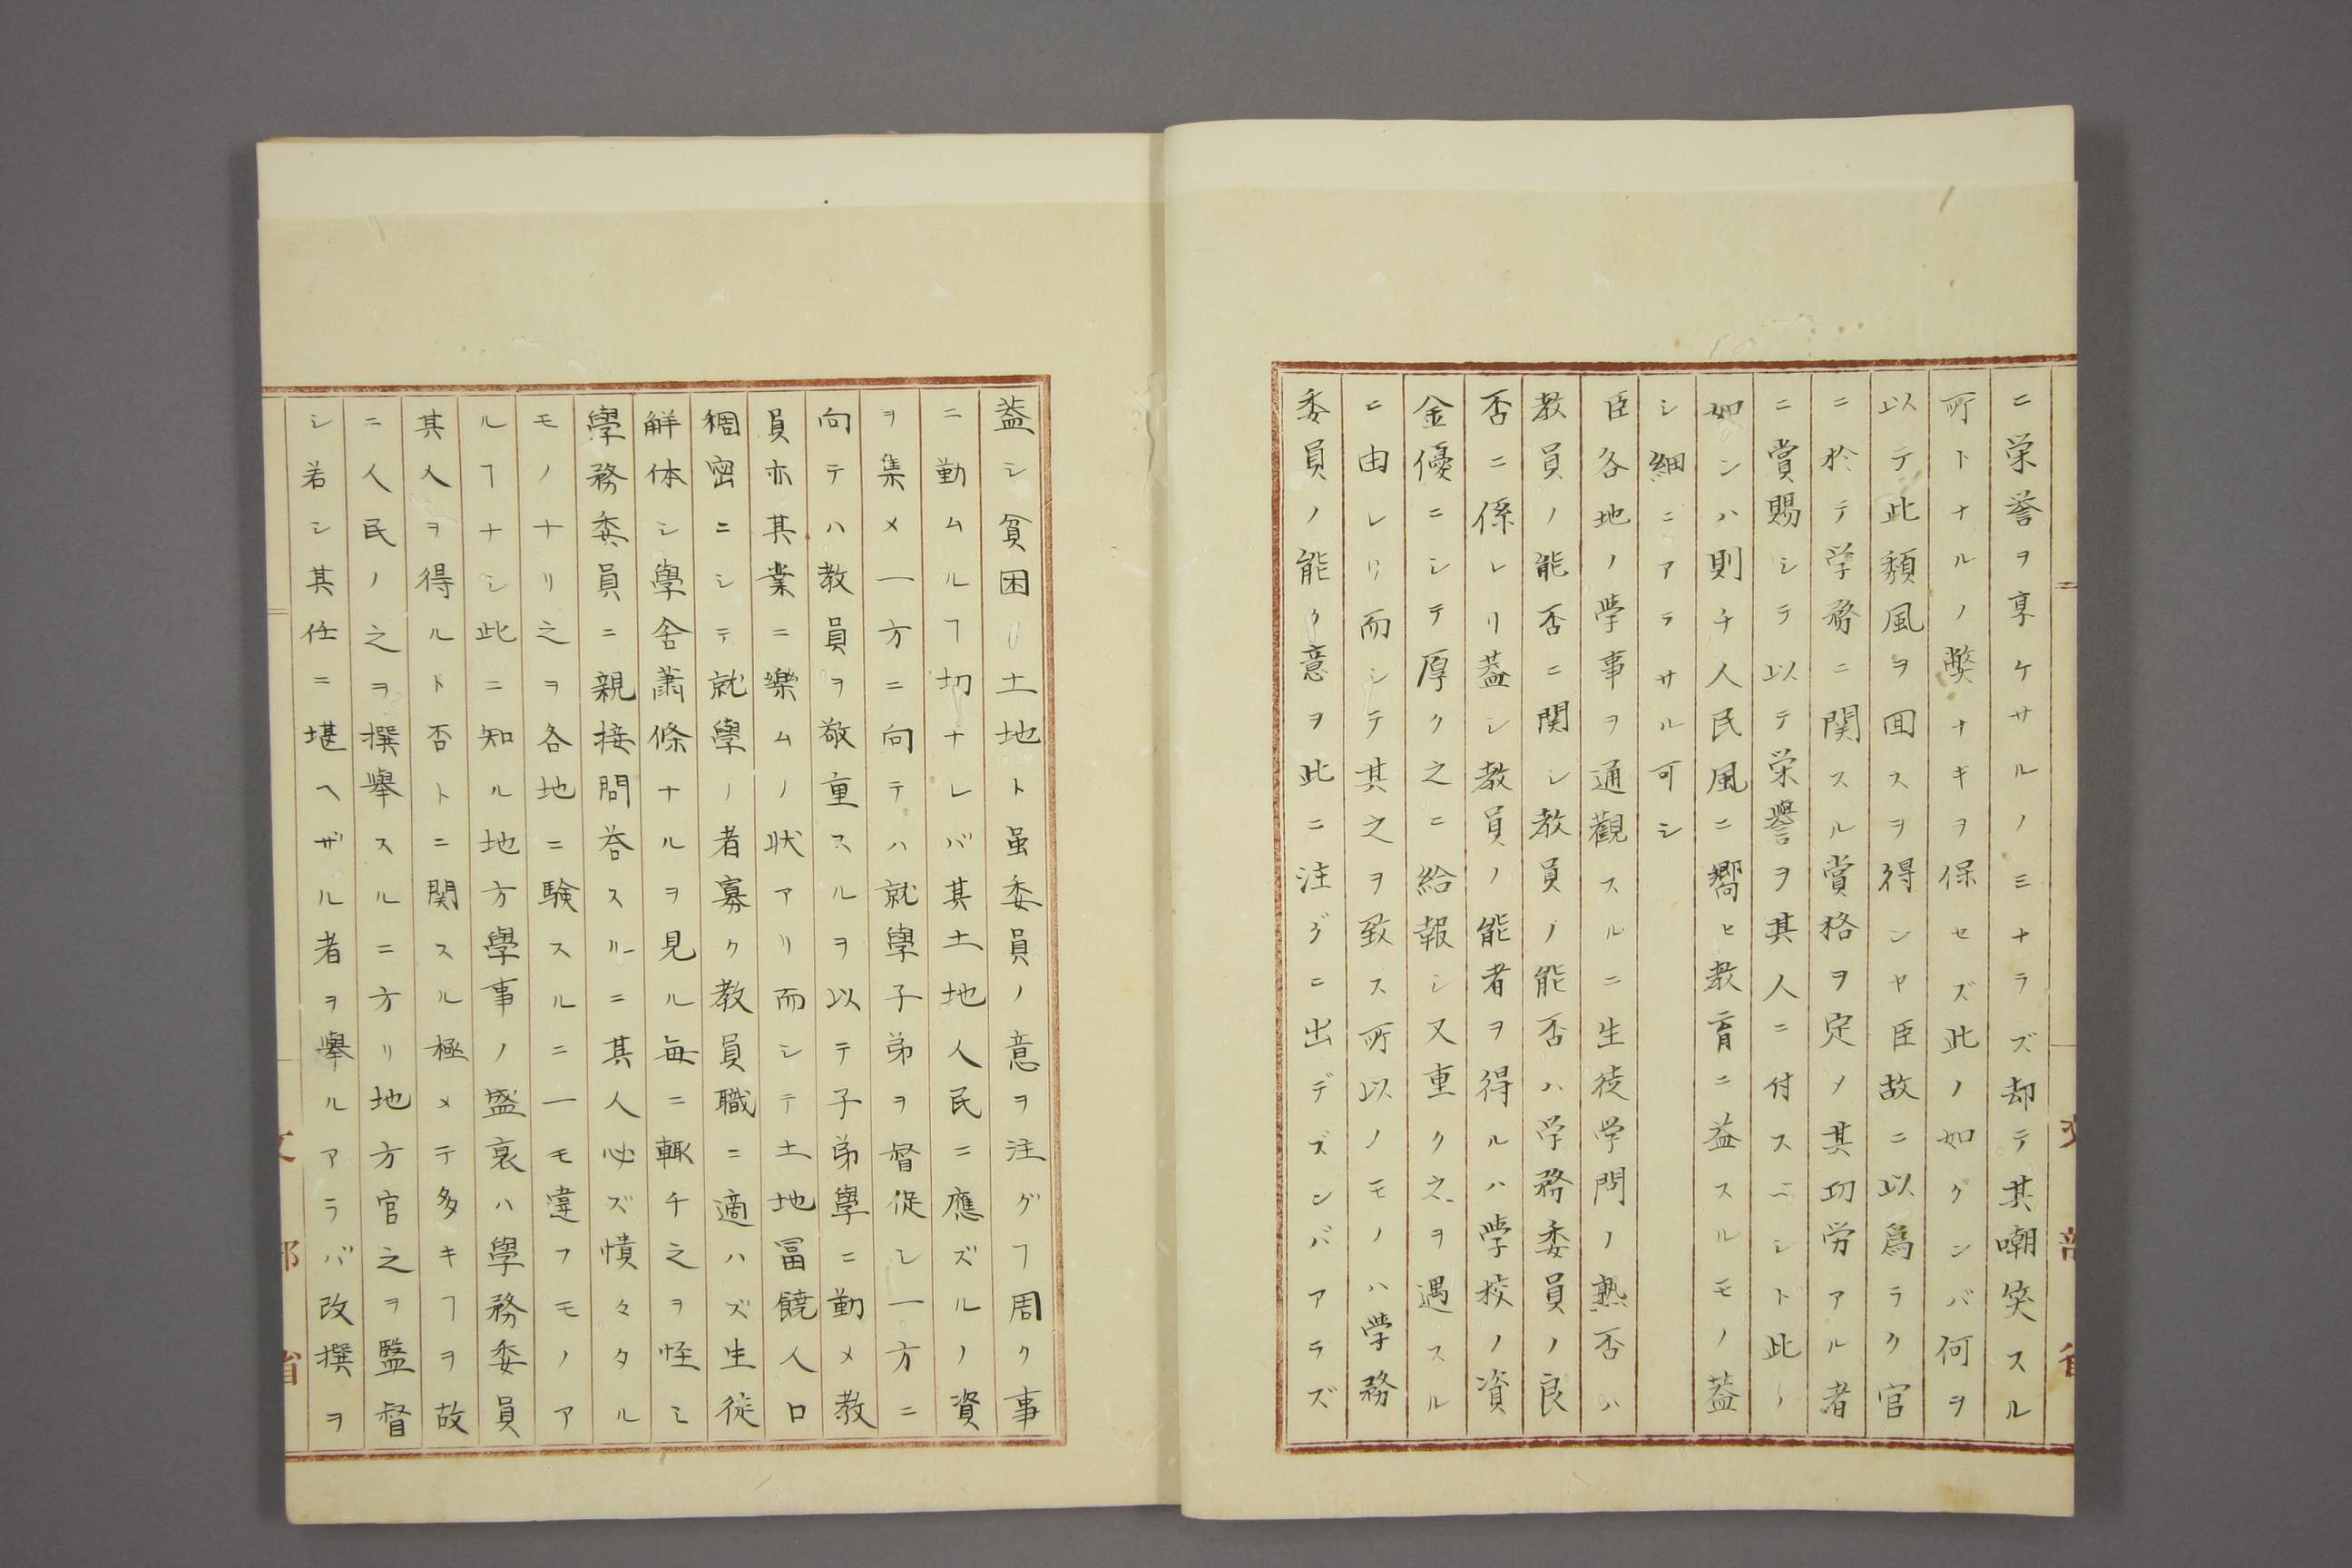 ニ栄誉ヲ享ケサルノミナラズ却テ其嘲笑スル
所トナルノ弊ナキヲ保セズ此ノ如クンバ何ヲ
以テ此頽風ヲ回スヲ得ンヤ臣故ニ以爲ラク官
ニ於テ学務ニ関スル賞格ヲ定メ其功労アル者
ニ賞賜シテ以テ栄譽ヲ其人ニ付スベシト此ノ
如ンハ則チ人民風ニ嚮ヒ教育ニ益スルモノ蓋
シ細ニアラサル可シ
臣各地ノ学事ヲ通觀スルニ生徒学問ノ熟否ハ
教員ノ能否ニ関シ教員ノ能否ハ学務委員ノ良
否ニ係レリ蓋シ教員ノ能者ヲ得ルハ学校ノ資
金優ニシテ厚ク之ニ給報シ又重ク之ヲ遇スル
ニ由レリ而シテ其之ヲ致ス所以ノモノハ学務
委員ノ能ク意ヲ此ニ注グニ出デズンバアラズ
蓋シ貧困ノ土地ト虽委員ノ意ヲ注グヿ周ク事
ニ勤ムルヿ切ナレバ其土地人民ニ應ズルノ資
ヲ集メ一方ニ向テハ就學子弟ヲ督促シ一方ニ
向テハ教員ヲ敬重スルヲ以テ子弟學ニ勤メ教
員亦其業ニ樂ムノ状アリ而シテ土地冨饒人口
稠密ニシテ就學ノ者寡ク教員職ニ適ハズ生徒
解体シ學舎蕭條ナルヲ見ル毎ニ輙チ之ヲ怪ミ
學務委員ニ親接問答スルニ其人必ズ憒々タル
モノナリ之ヲ各地ニ験スルニ一モ違フモノア
ルヿナシ此ニ知ル地方學事ノ盛衰ハ學務委員
其人ヲ得ルト否トニ関スル極メテ多キヿヲ故
ニ人民ノ之ヲ撰擧スルニ方リ地方官之ヲ監督
シ若シ其任ニ堪ヘザル者ヲ擧ルアラバ改撰ヲ
文部省
文部省